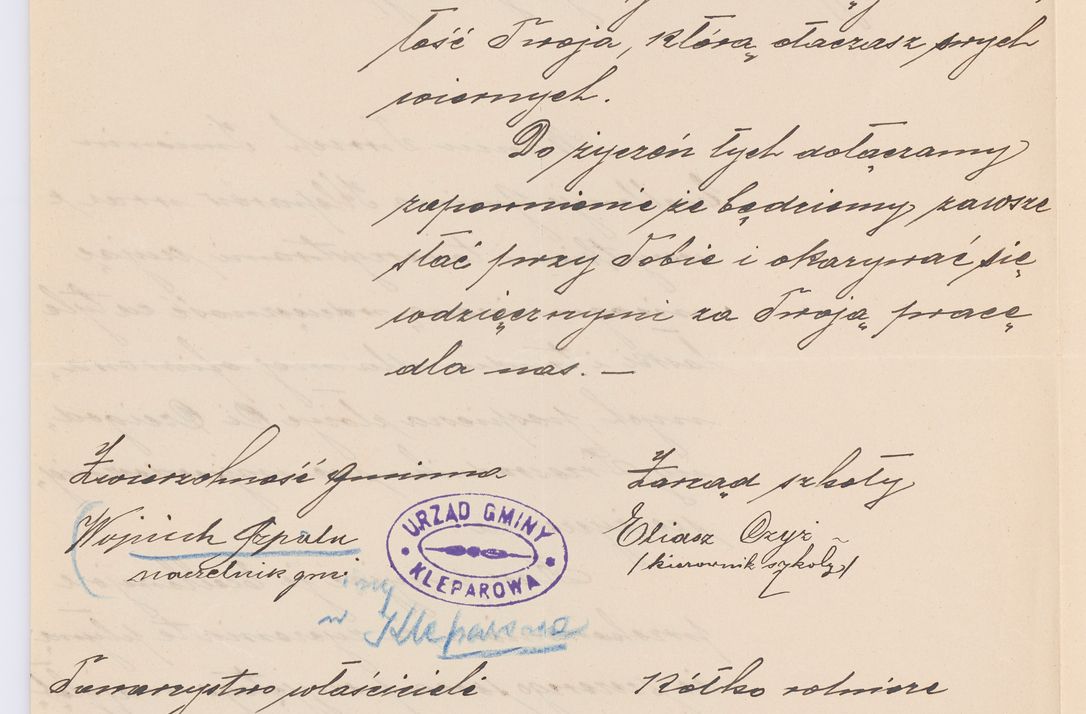 łość Twoja, którą otaczasz swych
wiernych.
Do życzeń tych dołączamy
zapewnienie że będziemy zawsze
stać przy Tobie i okazywać się
wdzięcznymi za Twoją pracę
dla nas. —
Zwierzchność gminna
Zarząd szkoły
Wojciech
Eliasz Czyż
naczelnik gmi
/kierownik szkoły/
URZĄD GMINY
KLEPAROWA
ny
w Kleparowa
Towarzystwo właścicieli
Kółko rolnicze